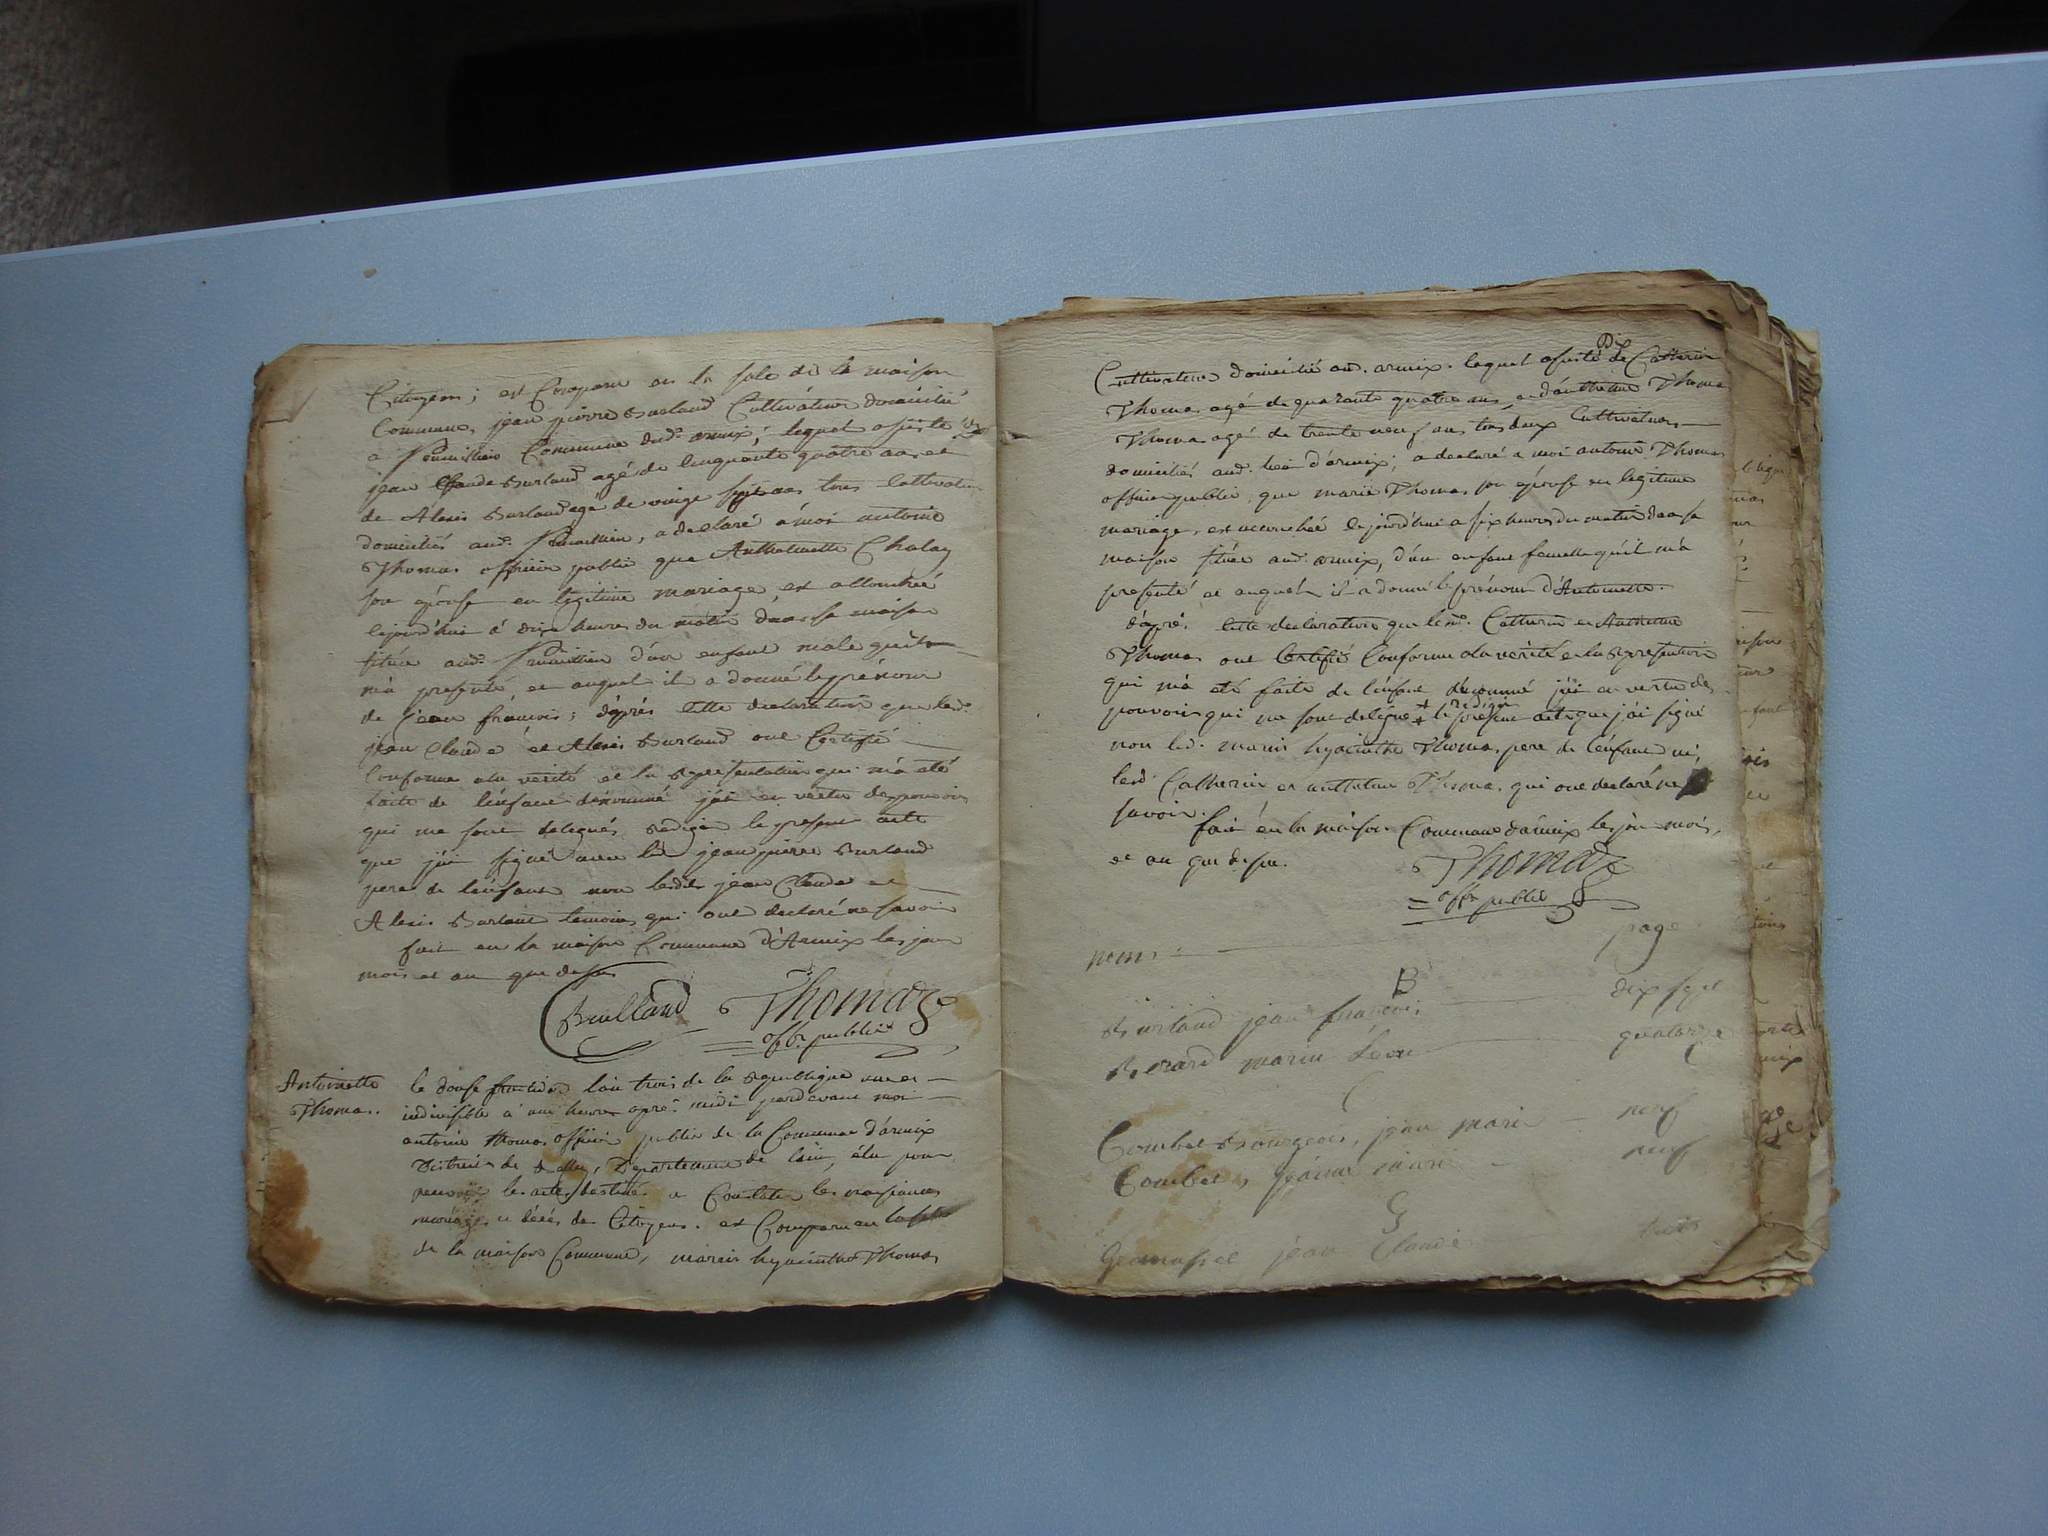 Citoyens; est Comparu en la sale de la maison
Commune, jean pierre Burland Cultivateur domicilié
a Commune dud. armix; lequel assisté de
jean Claude Burland agé de cinquante quatre ans et
de Alexis Burland agé de vingt sept ans tous Cultivateurs
domiciliés aud. , a declaré a moi antoine
Thomas officier public que Anthoinette Chalay
son épouse en légitime mariage, est accouchée
cejourd'hui à dix heures du matin dans sa maison
située aud. d'un enfant male qu'il
m'a presenté, et auquel il a donné le prénom
de jean françois; d'après cette declaration que lesd.
jean Claude et Alexis Burland ont Certifié
Conforme a la verité et la representation qui m'a été
faite de l'enfant dénommé j'ai en vertu des pouvoirs
qui me sont delegués redigé le present acte
que j'ai signé avec led. jean pierre Burland
pere de l'enfant non lesdits jean Claude et
Alexis Burland temoins qui ont declaré ne savoir
fait en la maison Commune d'Armix les jour
mois et an que dessus
Burlland Thomas
offr. public
Antoinette
Thomas.
le douse l'an trois de la Republique une et
indivisible à une heure après midi pardevant moi
antoine thomas officier public de la Commune d'armix
District de , Departement de l'ain, élu pour
recevoir les actes destinés a Constater les naissances
mariages et décés des Citoyens. est Comparu en la sale
de la maison Commune, marin hyacinthe Thomas
Cultivateur domicilié aud. armix. lequel assisté de Catherin
Thomas agé de quarante quatre ans, et d'anthelme Thomas
Thomas agé de trente neuf ans tous deux Cultivateurs
domiciliés aud. lieu d'armix; a declaré a moi antoine Thomas
officier public, que marie Thomas son épouse en legitime
mariage, est accouchée cejourd'hui a six heures du matin dans sa
maison située aud. armix, d'un enfant femelle qu'il m'a
presenté et auquel il a donné le prénom d'Antoinette.
d'après cette declaration que lesd. Catherin et Anthelme
Thomas ont Certifié Conforme a la verité et la representation
qui m'a été faite de l'enfant dénommé j'ai en vertu des
pouvoirs qui me sont delegués + redigé le present acte que j'ai signé
non led. marin hyacinthe Thomas pere de l'enfant ni,
lesd. Catherin et anthelme Thomas qui ont declaré ne
savoir.
fait en la maison Commune d'armix les jour mois,
et an que dessus.
Thomas
offr. public
noms page
B
Burland jean françois dix sept
Berard marin Léon quatorze
C
Combet Bourgeois, jean marie neuf
Combet, jeanne marie neuf
G
jean Claude huit